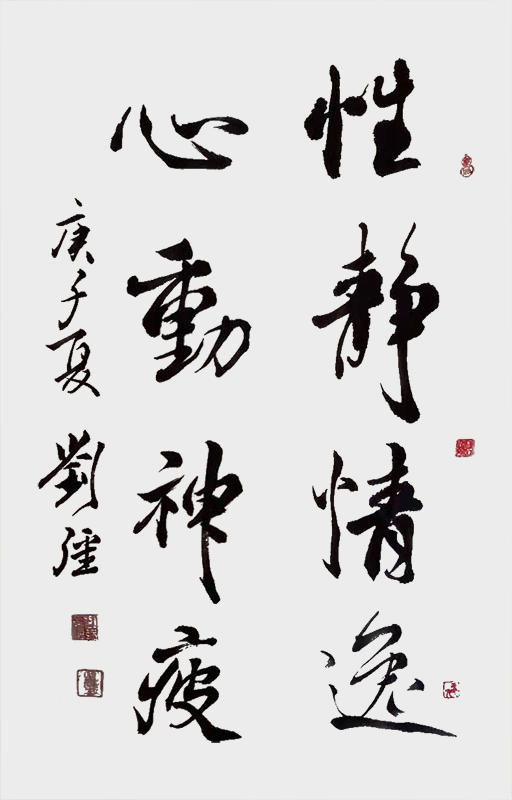 性靜情逸
心動神疲
庚子夏 劉